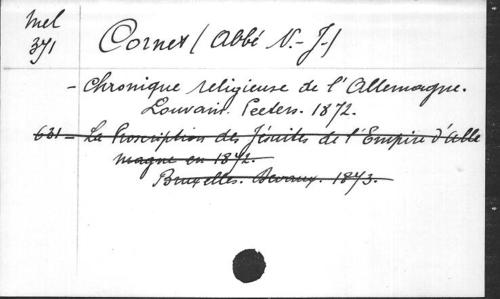 Mel
371
Cornet (Abbé N.-J.)
- Chronique religieuse de l'Allemagne.
Louvain. Peeters. 1872.
631 - La Proscription des Jésuites de l'Empire d'Alle
magne en 1872.
Bruxelles. Devaux. 1873.